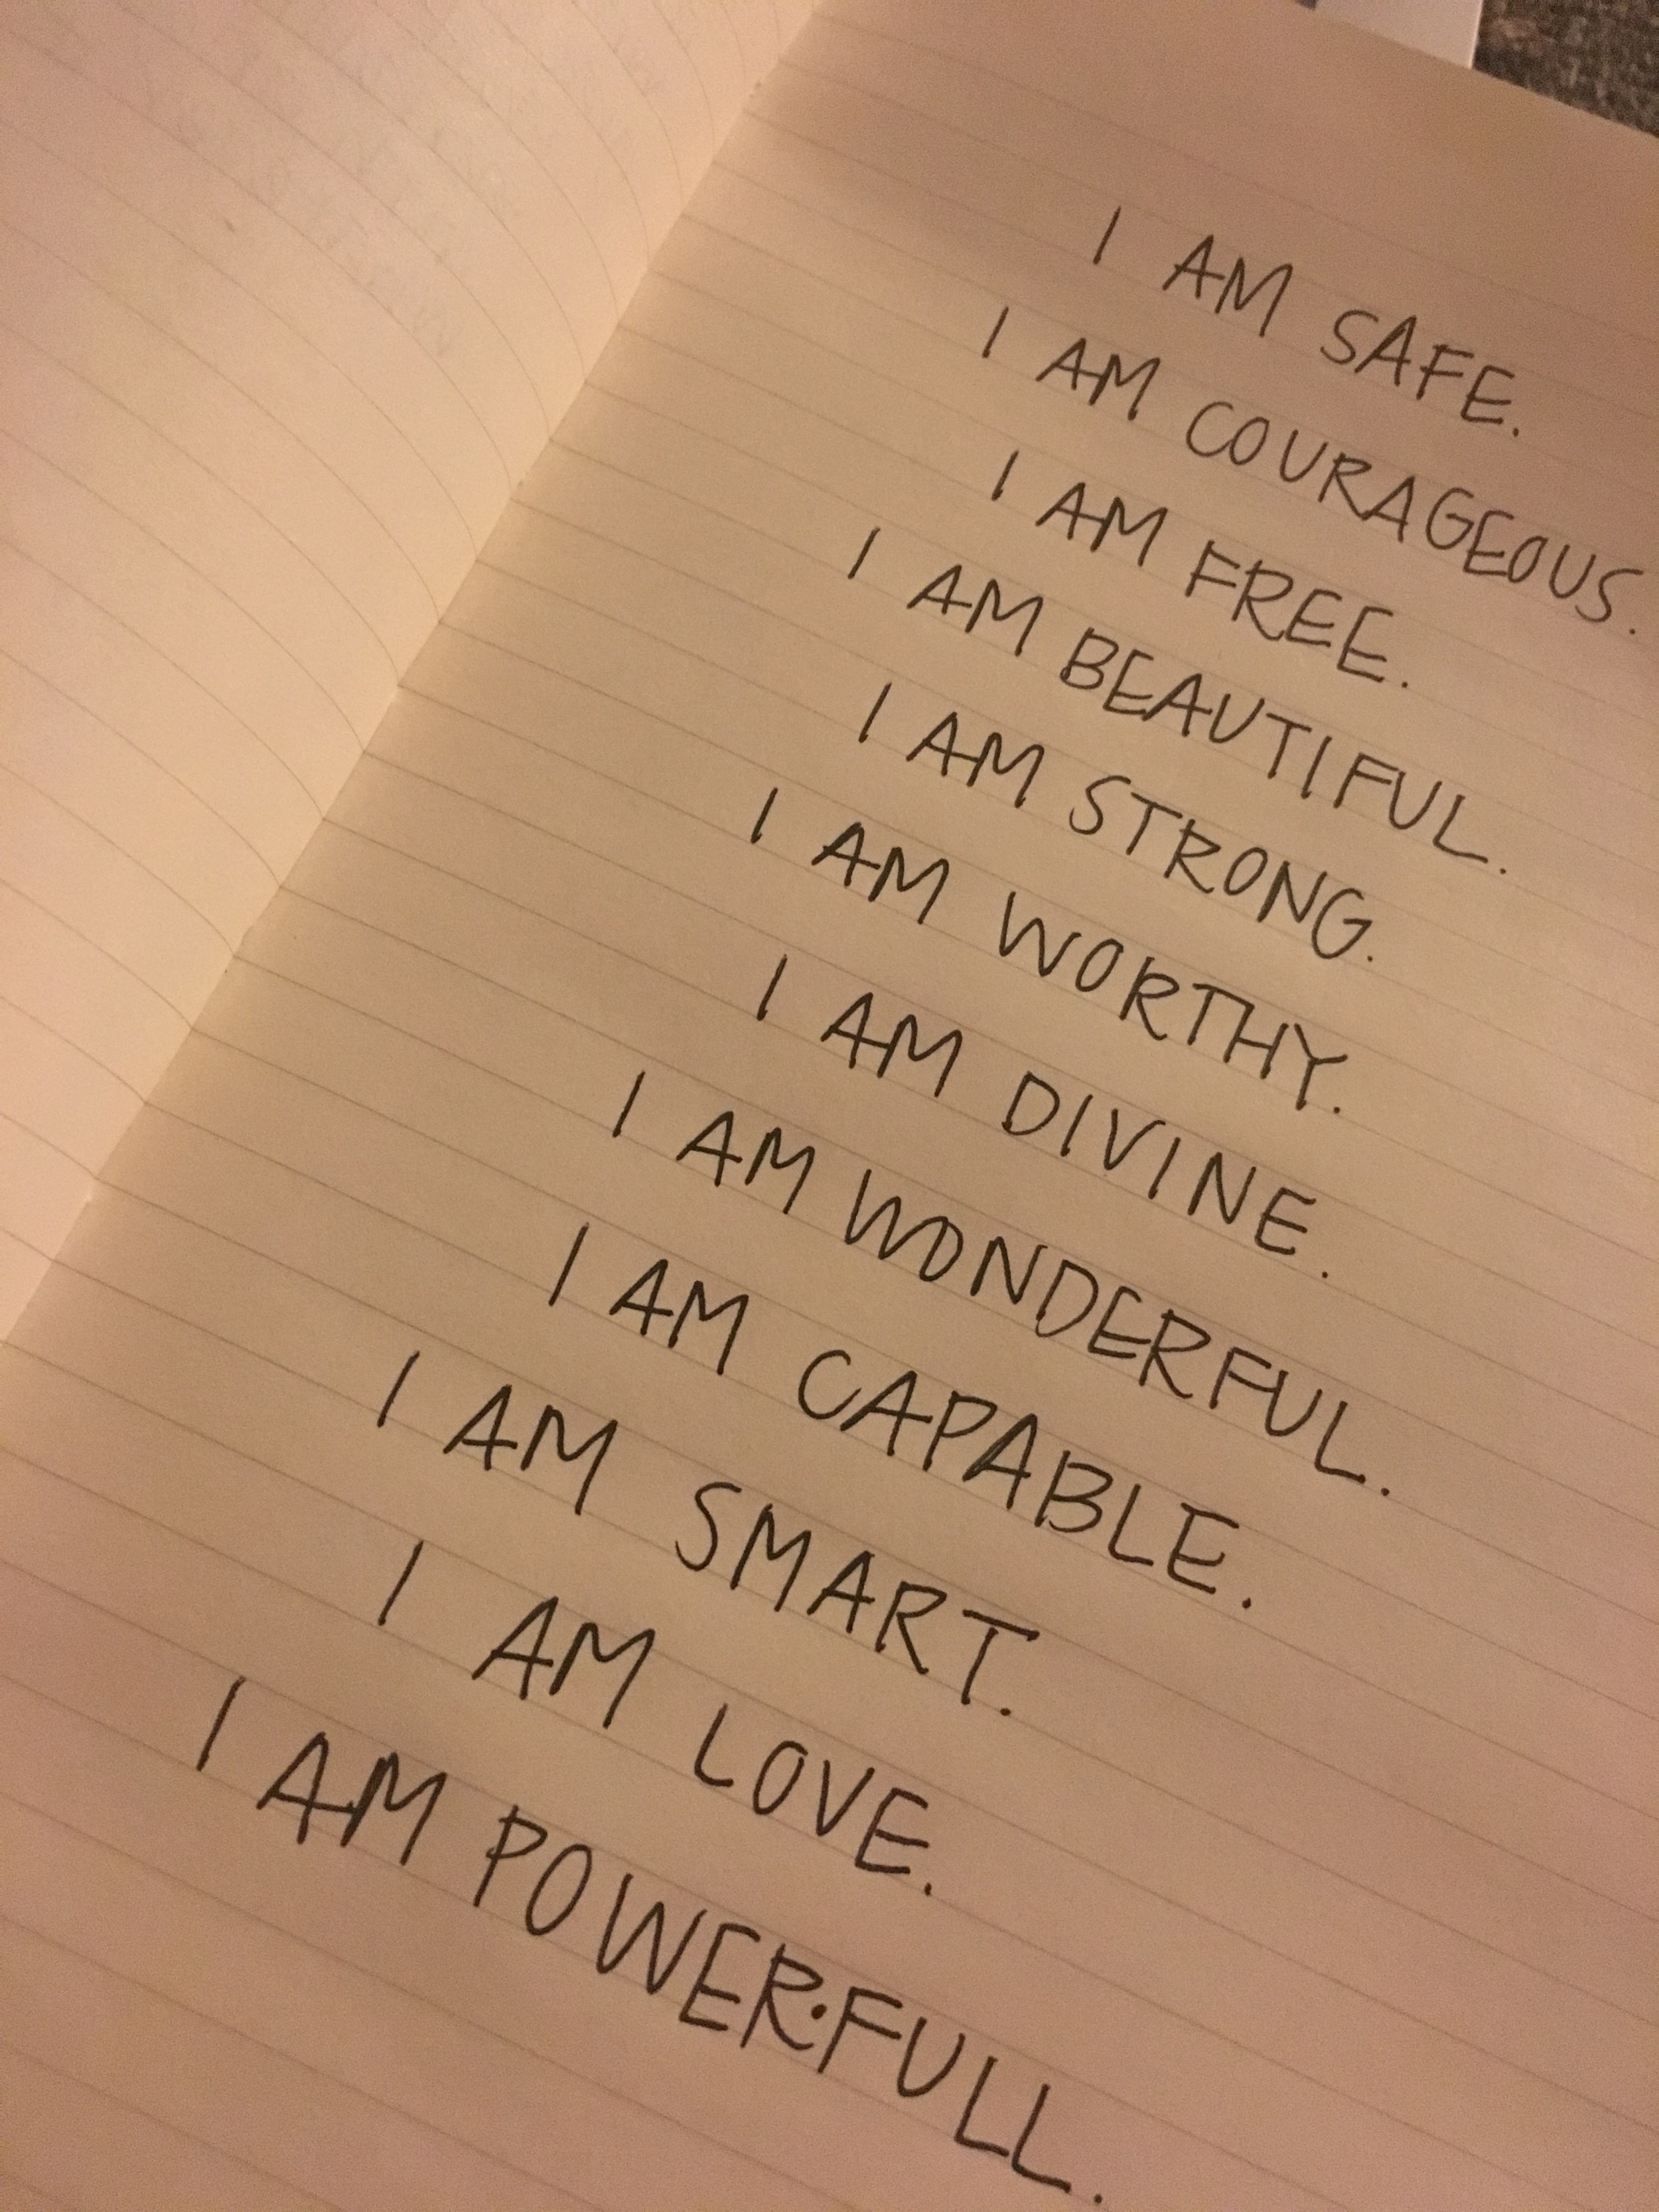 I AM SAFE.
I AM COURAGEOUS.
I AM FREE.
I AM BEAUTIFUL.
I AM STRONG.
I AM WORTHY.
I AM DIVINE.
I AM WONDERFUL.
I AM CAPABLE.
I AM SMART.
I AM LOVE.
I AM POWER·FULL.